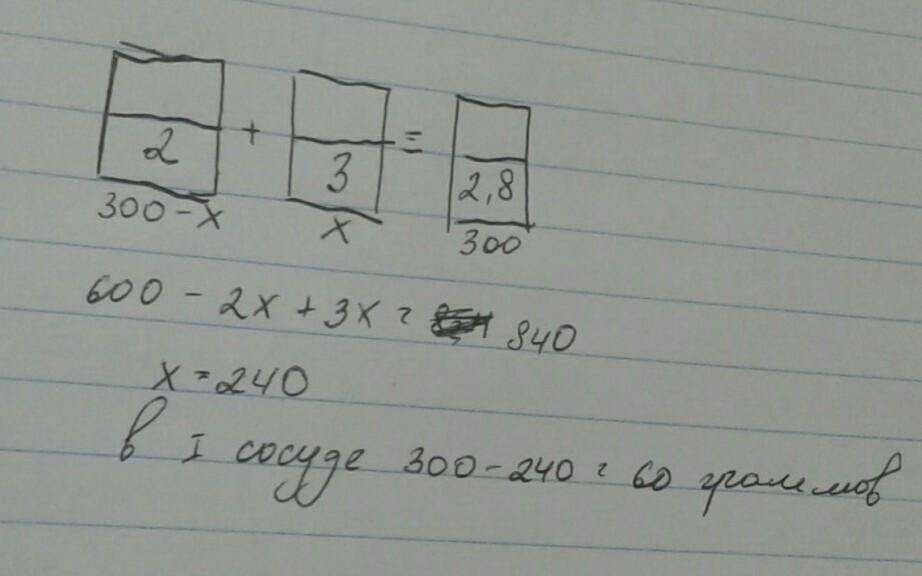 2 + 3 = 2,8
300 - x x 300
600 - 2x + 3x = 840
x = 240
в I сосуде 300 - 240 = 60 граммов